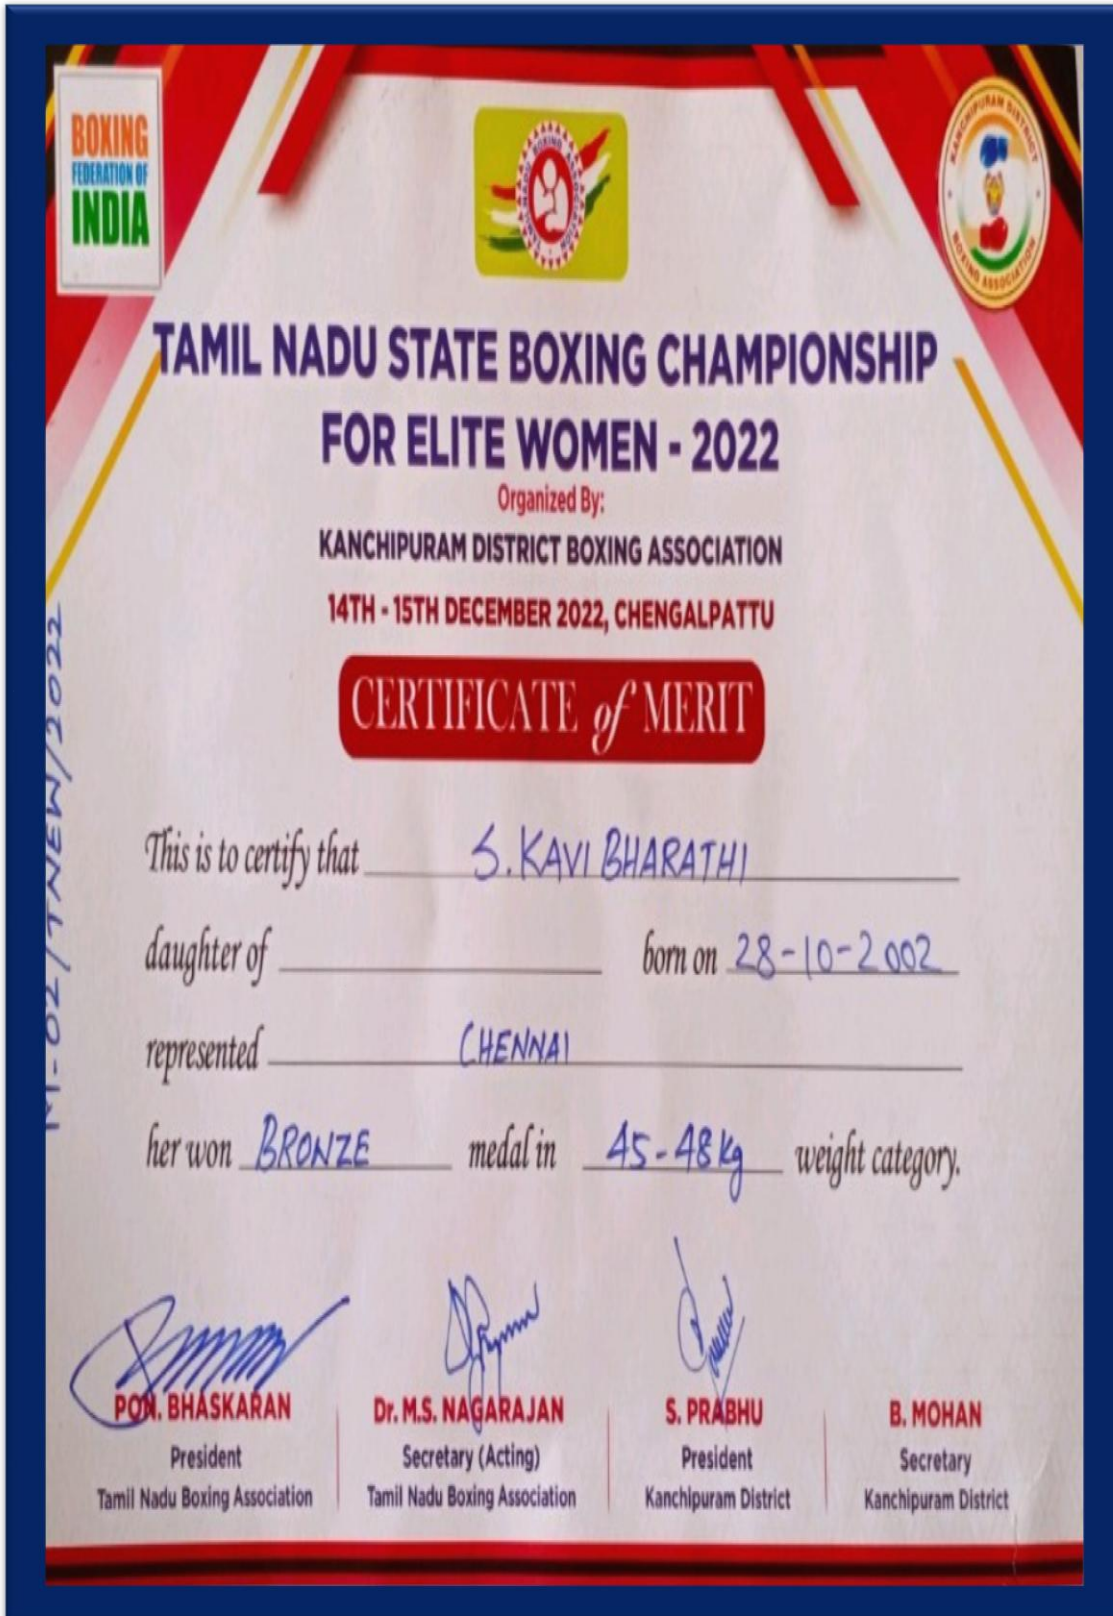 BOXING
FEDERATION OF
INDIA
TAMIL NADU BOXING ASSOCIATION
KANCHIPURAM DISTRICT
BOXING ASSOCIATION
TAMIL NADU STATE BOXING CHAMPIONSHIP
FOR ELITE WOMEN - 2022
Organized By:
KANCHIPURAM DISTRICT BOXING ASSOCIATION
14TH - 15TH DECEMBER 2022, CHENGALPATTU
CERTIFICATE of MERIT
This is to certify that S. KAVI BHARATHI
daughter of born on 28-10-2002
represented CHENNAI
her won BRONZE medal in 45-48 kg weight category.
PON. BHASKARAN
President
Tamil Nadu Boxing Association
Dr. M.S. NAGARAJAN
Secretary (Acting)
Tamil Nadu Boxing Association
S. PRABHU
President
Kanchipuram District
B. MOHAN
Secretary
Kanchipuram District
02/TNEW/2022